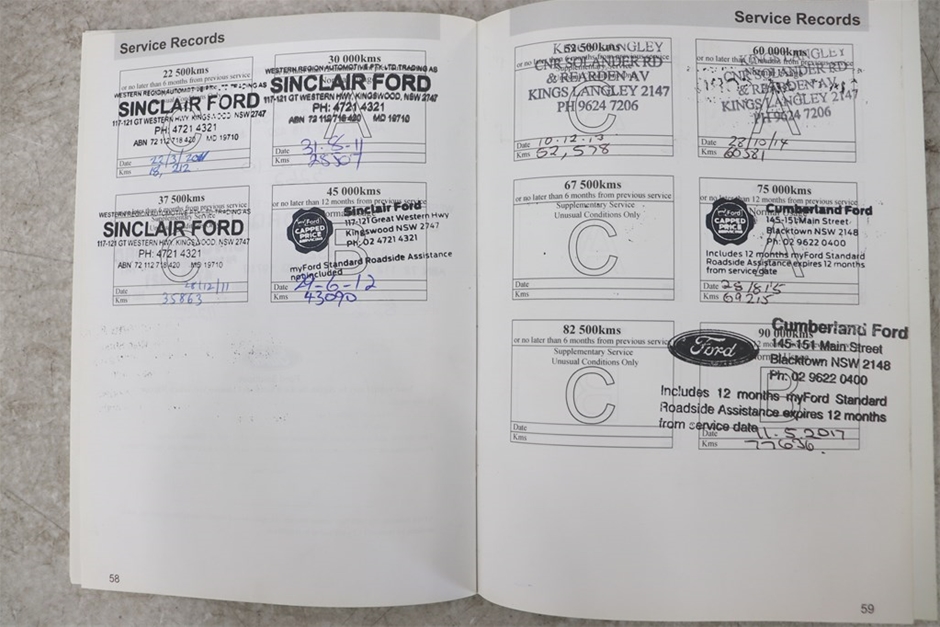 Service Records
22 500kms
or no later than 6 months from previous service
WESTERN REGION AUTOMOTIVE PTY LTD TRADING AS
SINCLAIR FORD
117-121 GT WESTERN HWY, KINGSWOOD, NSW 2747
PH: 4721 4321
ABN 72 112 718 420 MD 19710
Date 22/3/2011
Kms 18, 212
30 000kms
WESTERN REGION AUTOMOTIVE PTY LTD TRADING AS
SINCLAIR FORD
117-121 GT WESTERN HWY, KINGSWOOD, NSW 2747
PH: 4721 4321
ABN 72 112 718 420 MD 19710
Date 31-8-11
Kms 28807
37 500kms
or no later than 6 months from previous service
WESTERN REGION AUTOMOTIVE PTY LTD TRADING AS
Supplementary Service
SINCLAIR FORD
117-121 GT WESTERN HWY, KINGSWOOD, NSW 2747
PH: 4721 4321
C
ABN 72 112 718 420 MD 19710
Date 28/12/11
Kms 35863
45 000kms
or no later than 12 months from previous service
myFord
CAPPED
PRICE
SERVICING
Sinclair Ford
117-121 Great Western Hwy
Kingswood NSW 2747
PH: 02 4721 4321
myFord Standard Roadside Assistance
not included
B
Date 29-6-12
Kms 43090
58
Service Records
52 500kms
or no later than 6 months from previous service
KINGS LANGLEY
CNR SOLANDER RD
& REARDEN AV
KINGS LANGLEY 2147
PH 9624 7206
C
Date 10.12.13
Kms 52,578
60 000kms
or no later
KINGS LANGLEY
SOLANDER RD
& REARDEN AV
KINGS LANGLEY 2147
PH 9624 7206
Date 28/10/14
Kms 60381
67 500kms
or no later than 6 months from previous service
Supplementary Service
Unusual Conditions Only
C
Date
Kms
75 000kms
or no later than 12 months from previous service
myFord
CAPPED
PRICE
SERVICING
Cumberland Ford
145-151 Main Street
Blacktown NSW 2148
Ph: 02 9622 0400
Includes 12 months myFord Standard
Roadside Assistance expires 12 months
from service date
A
Date 28/8/15
Kms 69215
82 500kms
or no later than 6 months from previous service
Supplementary Service
Unusual Conditions Only
C
Date
Kms
90 000kms
Ford
Cumberland Ford
145-151 Main Street
Blacktown NSW 2148
Ph: 02 9622 0400
Includes 12 months myFord Standard
Roadside Assistance expires 12 months
from service date
B
Date 11.5.2017
Kms 77636
59